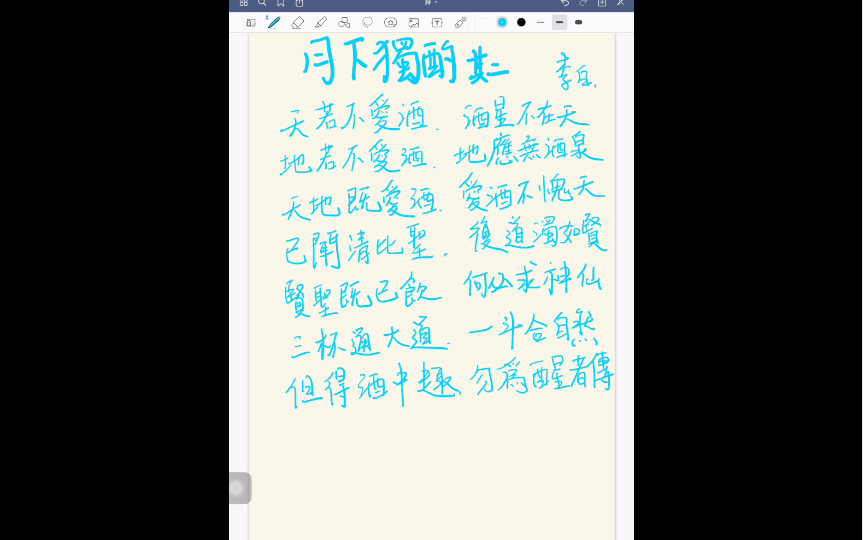 月下獨酌 其二
李白.
天若不愛酒. 酒星不在天
地若不愛酒. 地應無酒泉
天地既愛酒. 愛酒不愧天
已聞清比聖. 復道濁如賢
賢聖既已飲 何必求神仙
三杯通大道. 一斗合自然
但得酒中趣、勿為醒者傳